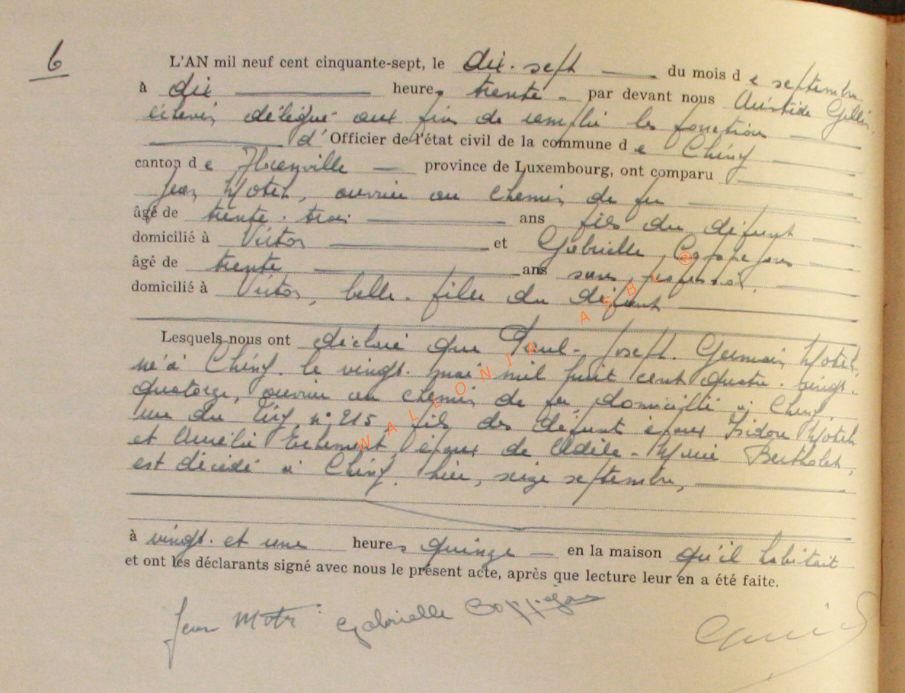 6
L'AN mil neuf cent cinquante-sept, le dix-sept du mois de septembre
à dix heures trente - par devant nous Aristide
échevin délégué aux fins de remplir les fonctions
d'Officier de l'état civil de la commune de Chiny
canton de Florenville province de Luxembourg, ont comparu
Jean , ouvrier au chemin de fer
âgé de trente-trois ans fils du défunt
domicilié à et Gabrielle
âgé de trente ans sans profession,
domicilié à , belle-fille du défunt
Lesquels nous ont déclaré que Paul-Joseph-Germain
né à Chiny, le vingt mai mil huit cent quatre-vingt-
quatorze, ouvrier au chemin de fer domicilié à Chiny,
rue du n° 215, fils des défunts époux Isidore
et Aurélie , époux de Adèle-Marie Bertholet,
est décédé à Chiny, hier, seize septembre,
à vingt-et-une heures quinze - en la maison qu'il habitait
et ont les déclarants signé avec nous le présent acte, après que lecture leur en a été faite.
Jean Gabrielle
WALLONIE